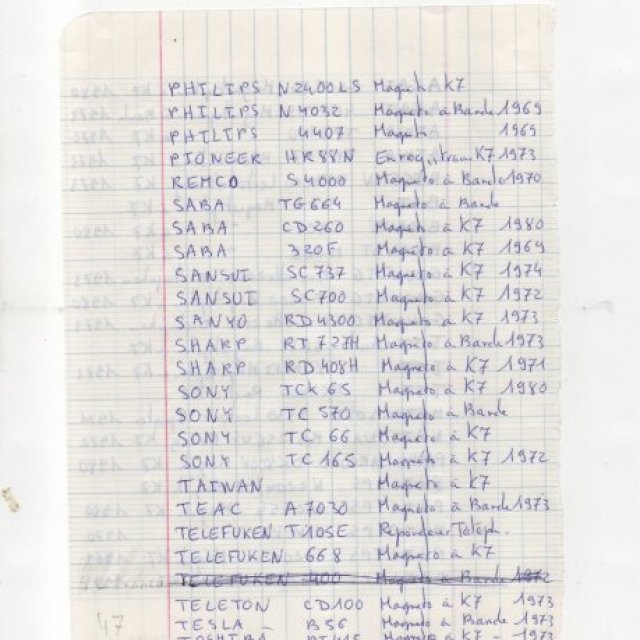 PHILIPS N2400LS Magneto K7
PHILIPS N4032 Magneto à Bande 1969
PHILIPS 4407 Magneto 1969
PIONEER HR88N Enregistreur K7 1973
REMCO S4000 Magneto à Bande 1970
SABA TG664 Magneto à Bande
SABA CD260 Magneto à K7 1980
SABA 320F Magneto à K7 1969
SANSUI SC737 Magneto à K7 1974
SANSUI SC700 Magneto à K7 1972
SANYO RD4300 Magneto à K7 1973
SHARP RT727H Magneto à Bande 1973
SHARP RD408H Magneto à K7 1971
SONY TCK65 Magneto à K7 1980
SONY TC570 Magneto à Bande
SONY TC66 Magneto à K7
SONY TC165 Magneto à K7 1972
TAIWAN Magneto à K7
TEAC A7030 Magneto à Bande 1973
TELEFUKEN T105E Répondeur Téléph.
TELEFUKEN 668 Magneto à K7
TELEFUKEN 400 Magneto à Bande 1972
TELETON CD100 Magneto à K7 1973
47 TESLA - B56 Magneto à Bande
TOSHIBA Magneto à K7 -